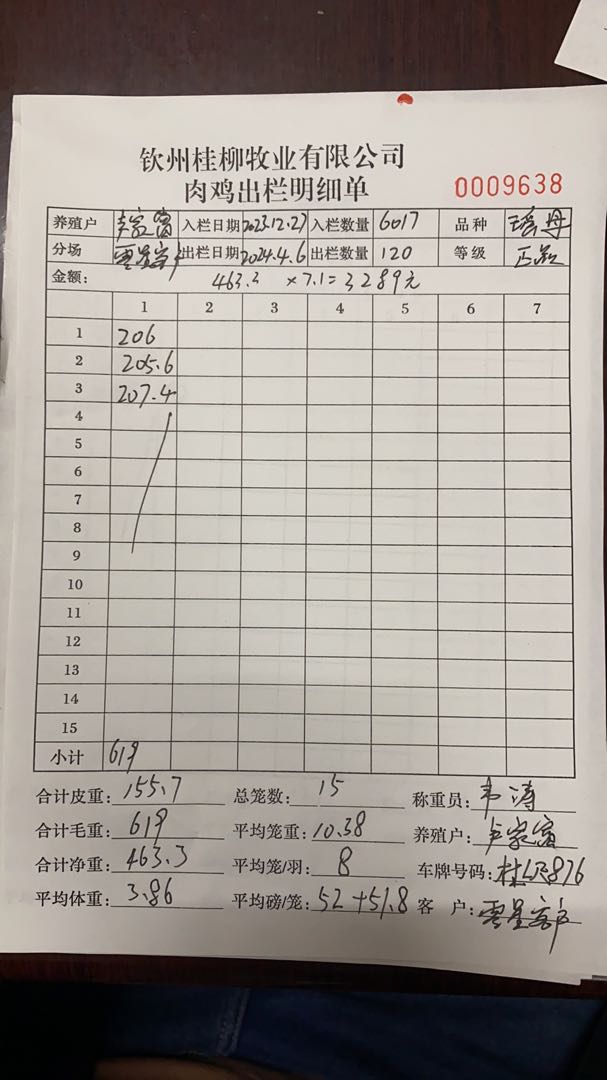 钦州桂柳牧业有限公司
肉鸡出栏明细单 0009638
养殖户 卢家富 入栏日期 2023.12.27 入栏数量 6017 品种 瑶丹
分场 零星客户 出栏日期 2024.4.6 出栏数量 120 等级 正品
金额: 463.3 ×7.1=3289元
1 2 3 4 5 6 7
1 206
2 205.6
3 207.4
4
5
6
7
8
9
10
11
12
13
14
15
小计 619
合计皮重: 155.7 总笼数: 15 称重员: 韦涛
合计毛重: 619 平均笼重: 10.38 养殖户: 卢家富
合计净重: 463.3 平均笼/羽: 8 车牌号码: 876
平均体重: 3.86 平均磅/笼: 52+51.8 客 户: 零星客户